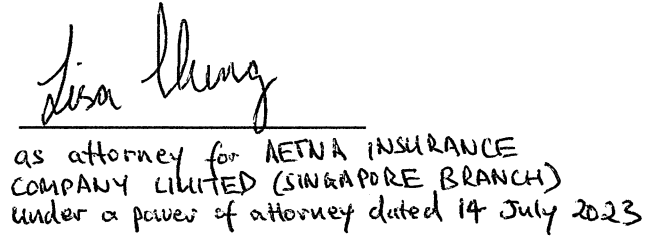 Lisa Cheng
as attorney for AETNA INSURANCE
COMPANY LIMITED (SINGAPORE BRANCH)
under a power of attorney dated 14 July 2023